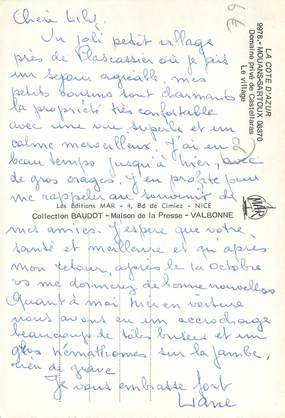 Chère Lily.
Un joli petit village
près de Plascassier où je fait
un séjour agréable, mes
petits cousins sont charmants
la propriété très confortable
avec une vue superbe et un
calme merveilleux. J'ai eu
beau temps jusqu'à hier,
de gros orages. J'en profite pour
me rappeler au souvenir de
Les Éditions MAR - 4, Bd de Cimiez - NICE
Collection BAUDOT - Maison de la Presse - VALBONNE
mes amies. J'espère que votre
santé est meilleure et qu'après
mon retour, après le 10 octobre
vs me donnerez de bonnes nouvelles
Quant à moi hier en voiture
nous avons eu un accrochage
beaucoup de tôles et un
gros hématomes sur la jambe,
rien de grave
Je vous embrasse fort
Liane
LA COTE D'AZUR
9978. - MOUANS-SARTOUX 06370
Domaine privé de Castellaras
Le village
MAR